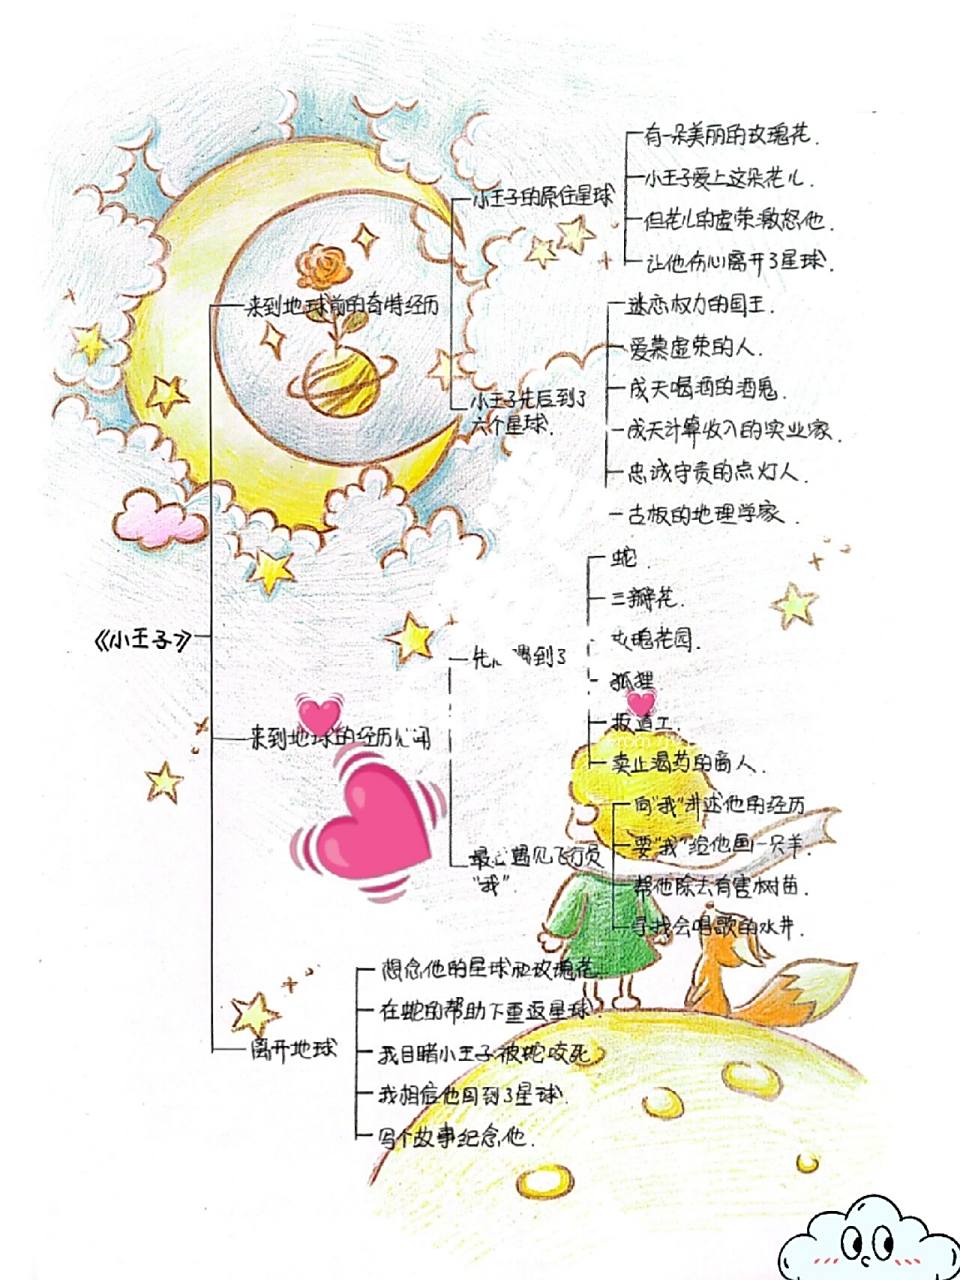 有一朵美丽的玫瑰花.
小王子的原住星球
小王子爱上这朵花儿.
但花儿的虚荣激怒他.
让他伤心离开了星球.
来到地球前的奇特经历
迷恋权力的国王.
爱慕虚荣的人.
成天喝酒的酒鬼.
小王子先后到了
六个星球.
成天计算收入的实业家.
忠诚守责的点灯人.
古板的地理学家.
蛇.
三瓣花.
《小王子》
玫瑰花园.
遇到了
狐狸
扳道工.
来到地球的经历
卖止渴药的商人.
向"我"讲述他的经历
要"我"给他画一只羊.
遇见飞行员
"我".
帮他除去有害树苗.
寻找会唱歌的水井.
想念他的星球和玫瑰花.
在蛇的帮助下重返星球
离开地球
我目睹小王子被蛇咬死
我相信他回到了星球.
写个故事纪念他.